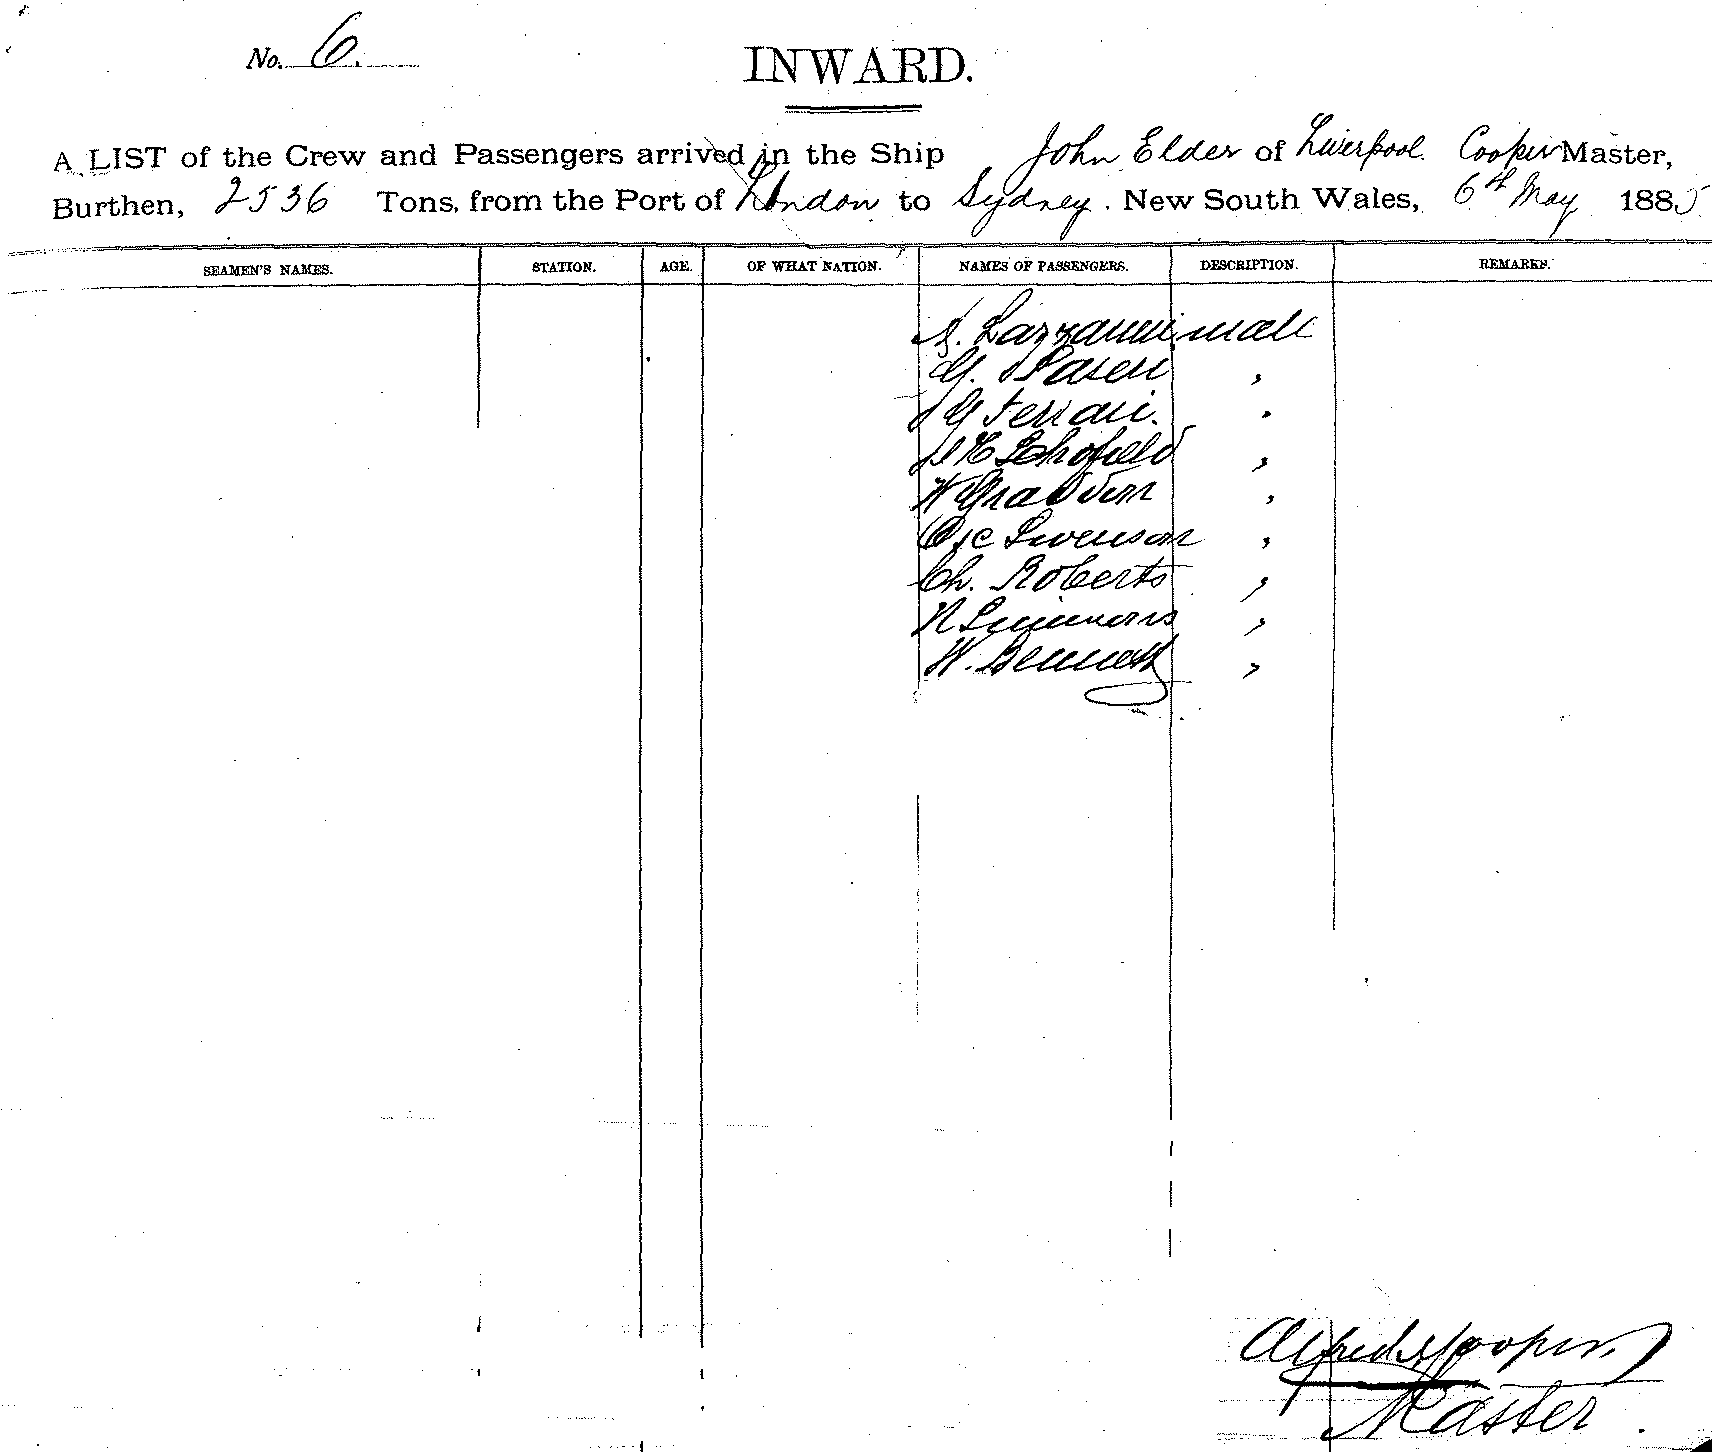 No. 6.
INWARD.
A LIST of the Crew and Passengers arrived in the Ship John Elder of Liverpool. Cooper Master,
Burthen, 2536 Tons, from the Port of London to Sydney. New South Wales, 6th May 1885
SEAMEN'S NAMES. STATION. AGE. OF WHAT NATION. NAMES OF PASSENGERS. DESCRIPTION. REMARKS.
male
G. ,
G Ferrari. "
Schofield ,
W ,
Swenson ,
Ch. Roberts ,
Simmons ,
W. Bennett ,
Alfred Cooper
Master